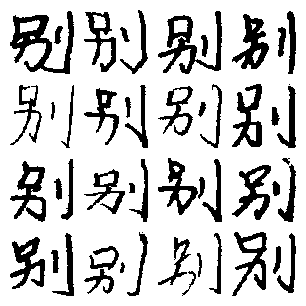 别别别别
别别别别
别别别别
别别别别